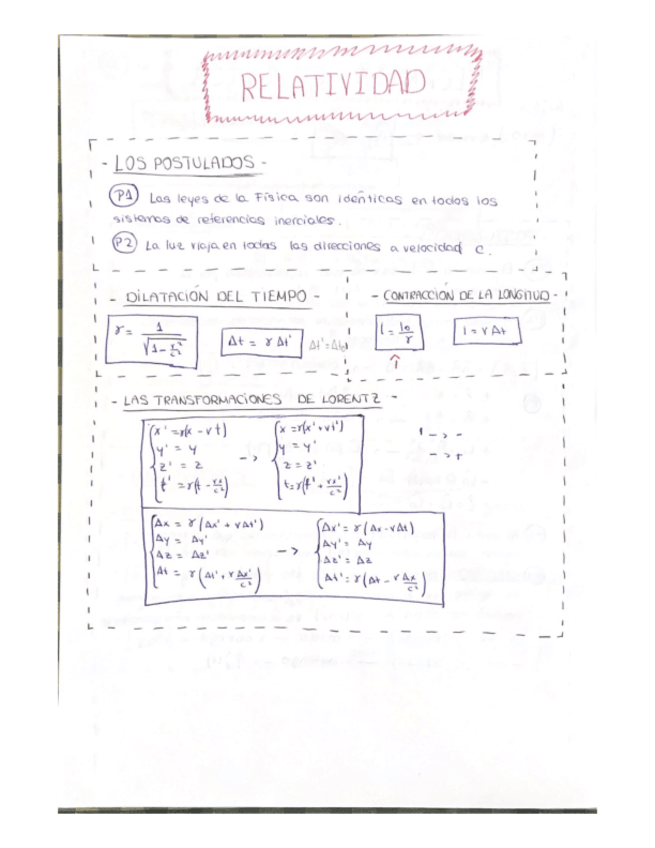 RELATIVIDAD
- LOS POSTULADOS -
P1 Las leyes de la Física son idénticas en todos los
sistemas de referencias inerciales.
P2 La luz viaja en todas las direcciones a velocidad c.
- DILATACIÓN DEL TIEMPO -
γ = 1 / √(1 - v²/c²)
Δt = γ Δt'
Δt' = Δt₀
- CONTRACCIÓN DE LA LONGITUD -
l = l₀/γ
l = v Δt
- LAS TRANSFORMACIONES DE LORENTZ -
x' = γ(x - vt) -> x = γ(x' + vt')
y' = y y = y'
z' = z z = z'
t' = γ(t - vx/c²) t = γ(t' + vx'/c²)
' -> -
-> +
Δx = γ(Δx' + vΔt') -> Δx' = γ(Δx - vΔt)
Δy = Δy' Δy' = Δy
Δz = Δz' Δz' = Δz
Δt = γ(Δt' + v Δx'/c²) Δt' = γ(Δt - v Δx/c²)